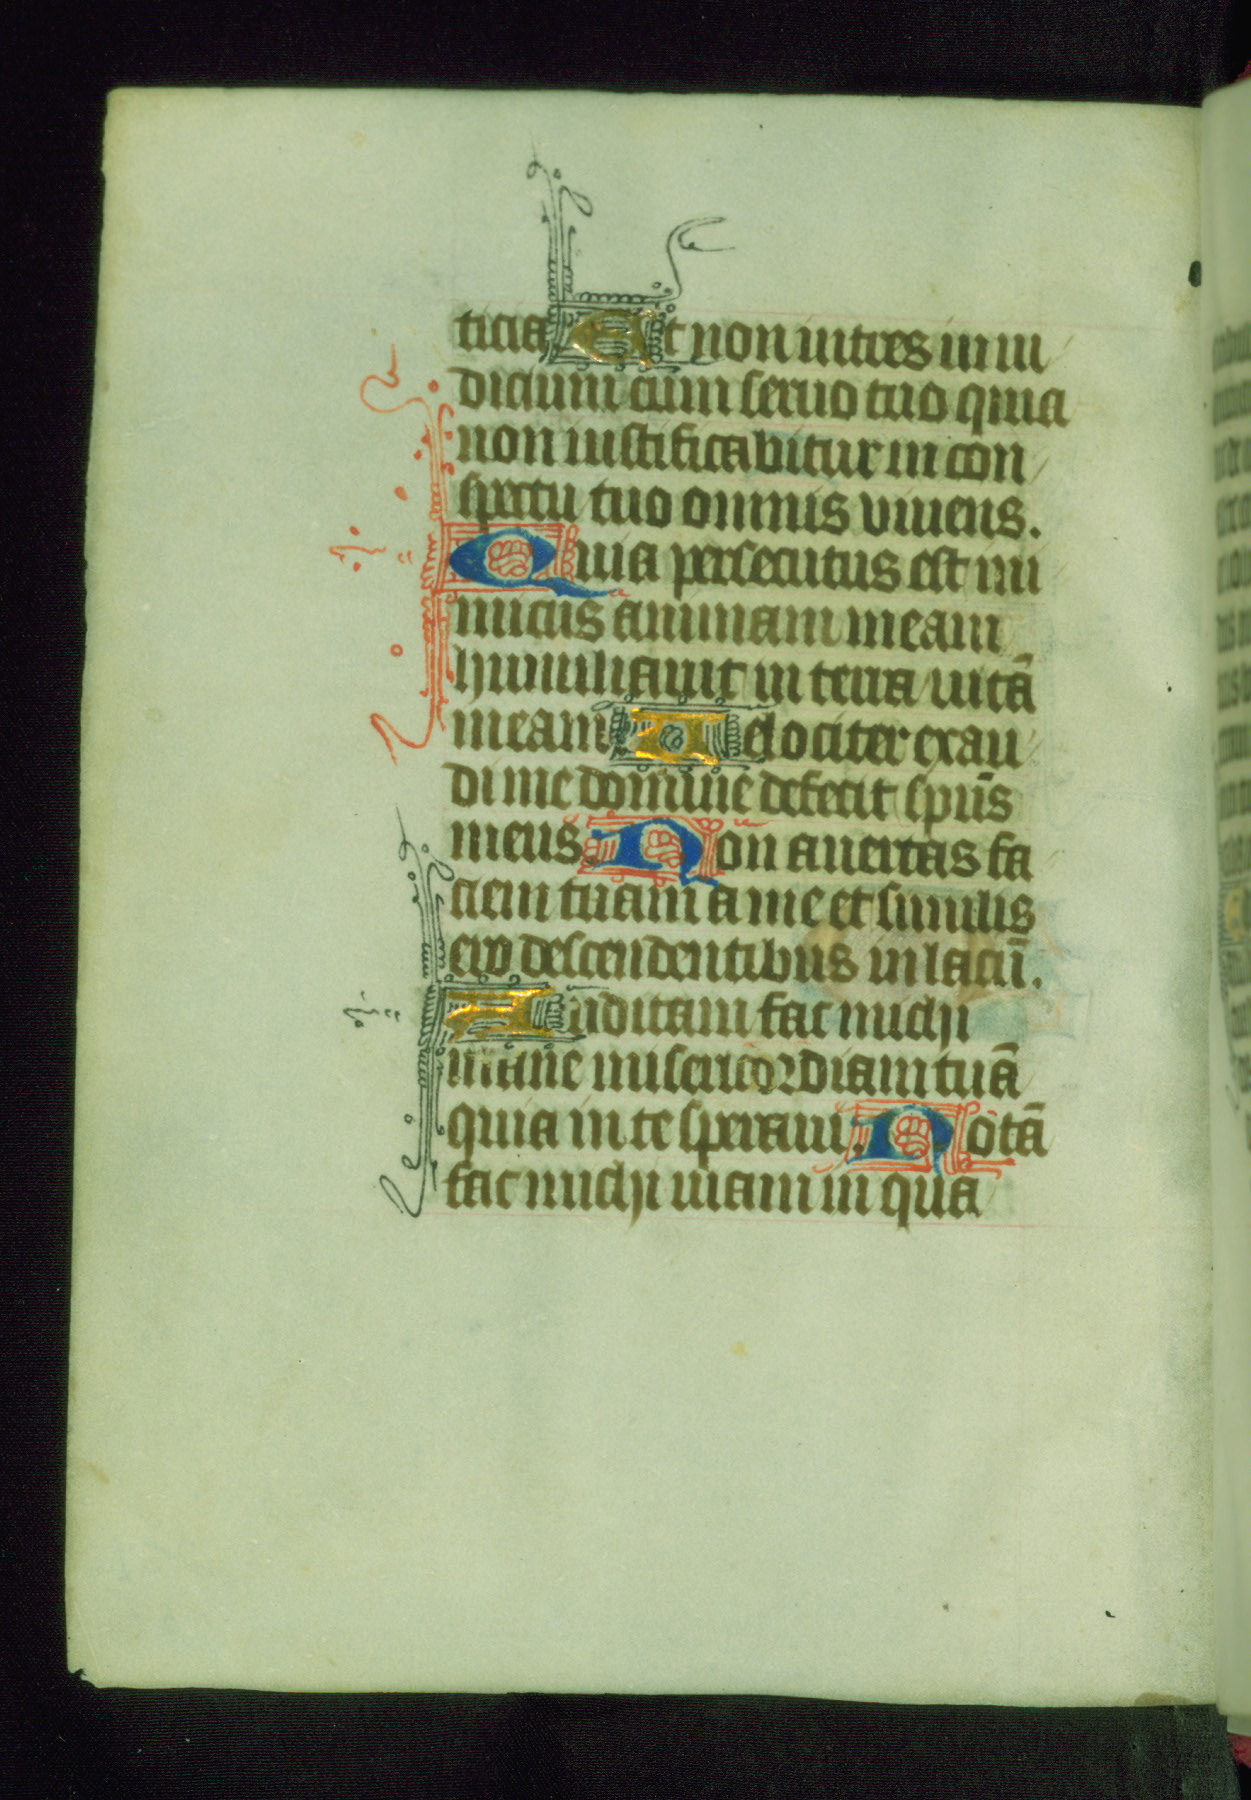 ticia Et non intres in iu
dicium cum seruo tuo quia
non iustificabitur in con
spectu tuo omnis viuens.
Quia persecutus est ini
micus animam meam
humiliauit in terra uitã
meam Velociter exau
di me domine defecit spūs
meus. Non auertas fa
ciem tuam a me et similis
ero descendentibus in lacū.
Auditam fac michi
mane misericordiam tuã
quia in te speraui. Notã
fac michi uiam in qua